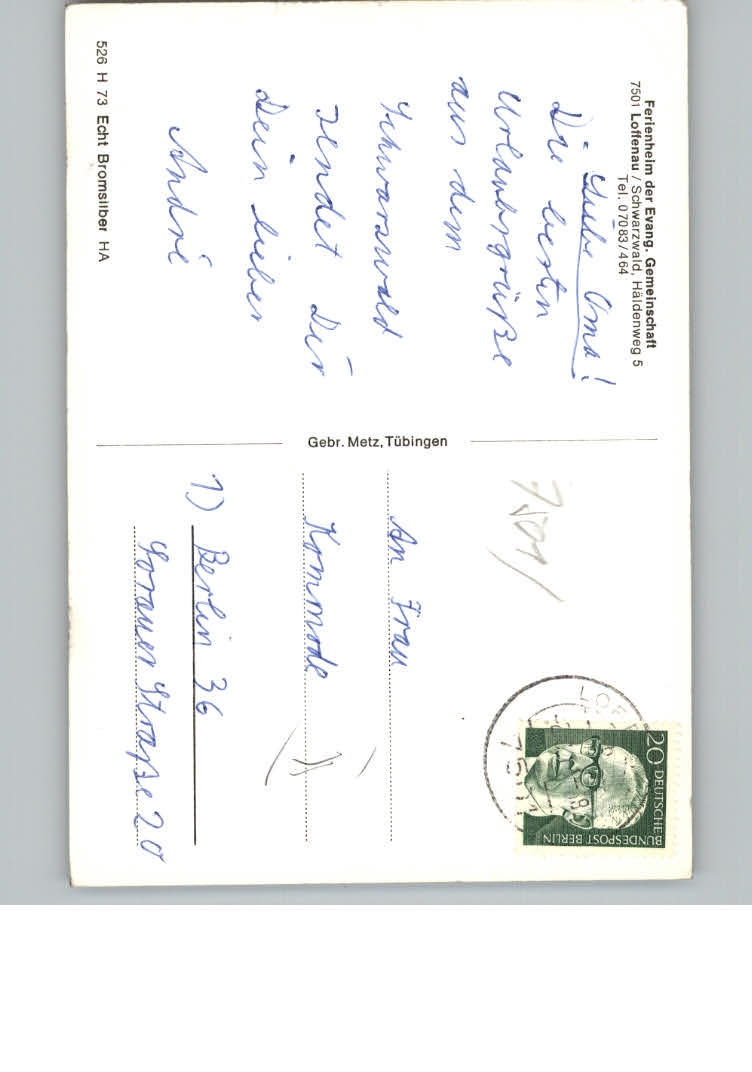 Ferienheim der Evang. Gemeinschaft
7501 Loffenau / Schwarzwald, Häldenweg 5
Tel. 07083/464
Liebe Oma!
Die besten
Urlaubsgrüße
aus dem
Schwarzwald
sendet Dir
Dein lieber
André
526 H 73 Echt Bromsilber HA
Gebr. Metz, Tübingen
7501
An Frau
Kommode
1) Berlin 36
Sorauer Straße 20
20 DEUTSCHE
BUNDESPOST BERLIN
7501